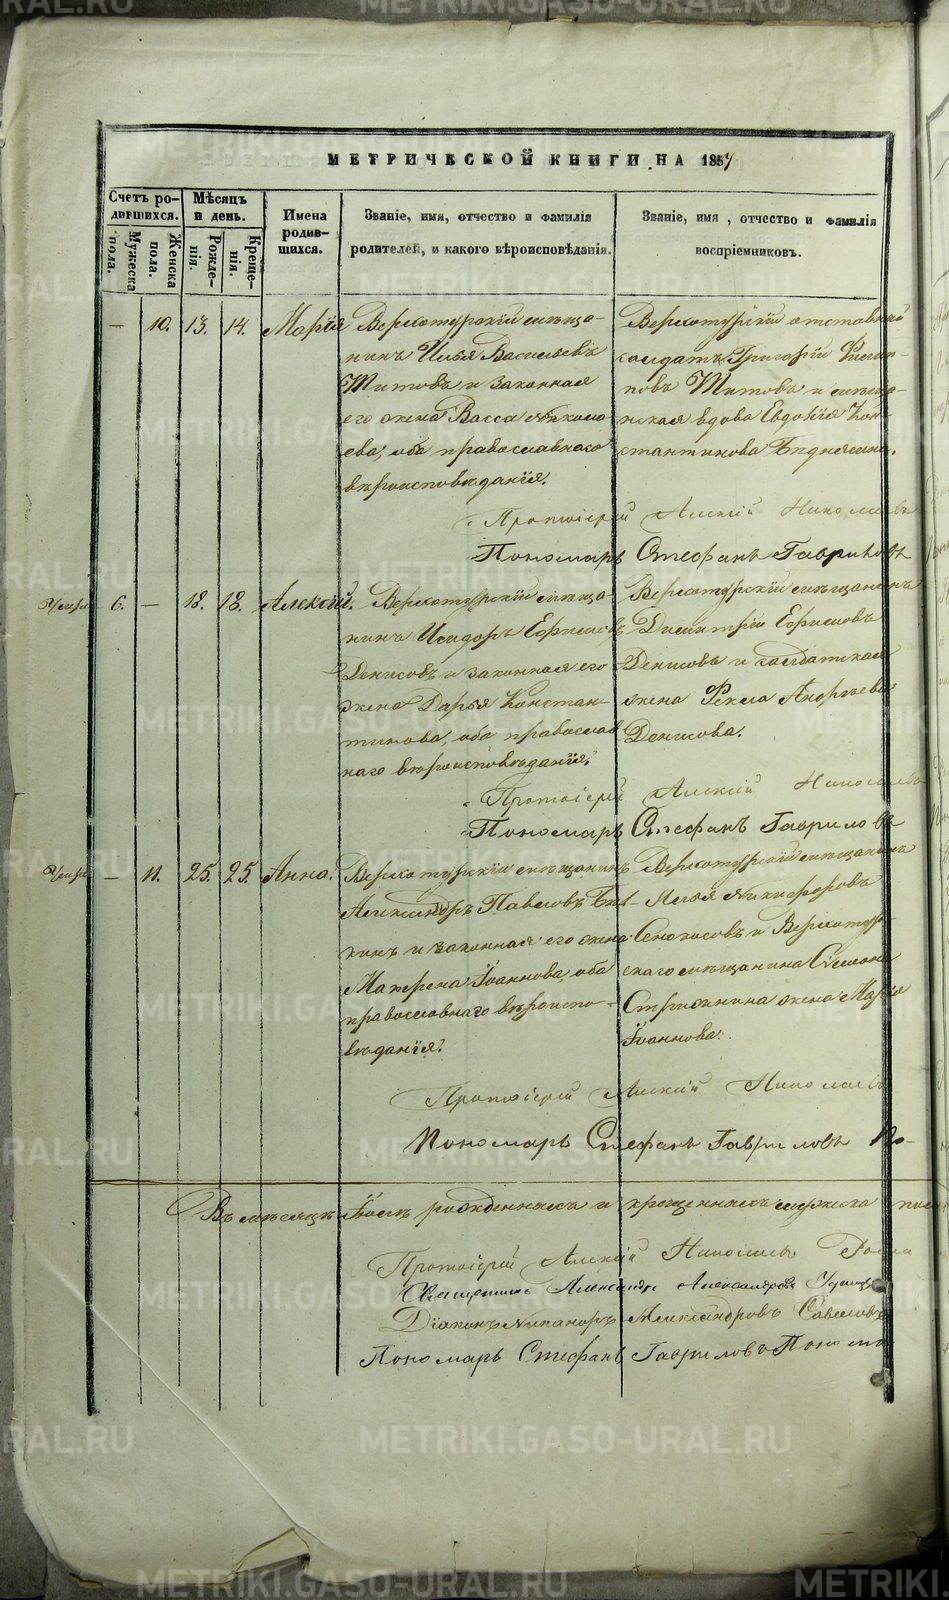 МЕТРИЧЕСКОЙ КНИГИ НА 1857
Счетъ ро-
дившихся.
Мѣсяцъ
и день.
Имена
родив-
шихся.
Званіе, имя, отчество и фамилія
родителей, и какого вѣроисповѣданія.
Званіе, имя, отчество и фамилія
воспріемниковъ.
Мужеска
пола.
Женска
пола.
Рожде-
нія.
Креще-
нія.
— 10. 13. 14. Марія
Верхотурскій мѣща-
нинъ Илья Васильевъ
Титовъ и законная
его жена Васса Николае-
ва, оба православнаго
вѣроисповѣданія.
Верхотурскій отставный
солдатъ Григорій
Титовъ и мѣщан-
нская вдова Евдокія Кон-
стантинова
Протоіерей Алексій Николаевъ
Пономарь Стефанъ Гавриловъ
6. — 18. 18. Алексій.
Верхотурскій мѣща-
нинъ Исидоръ Ефимовъ
Денисовъ и законная его
жена Дарья Констан-
тинова, оба православ
наго вѣроисповѣданія.
Верхотурскій мѣщанинъ
Димитрій Ефимовъ
Денисовъ и солдатская
жена Фекла Андреева
Денисова.
Протоіерей Алексій Николаевъ
Пономарь Стефанъ Гавриловъ
— 11. 25. 25. Анна.
Верхотурскій мѣщанинъ
Александръ Павловъ
кинъ и законная его жена
Матрена Іоаннова, оба
православнаго вѣроиспо-
вѣданія.
Верхотурскій мѣщанинъ
Илья Никифоровъ
Сенокосовъ и Верхотур-
скаго мѣщанина Симеона
Стрижкина жена Марія
Іоаннова.
Протоіерей Алексій Николаевъ
Пономарь Стефанъ Гавриловъ По-
Въ мѣсяцѣ рожденныхъ и крещенныхъ мужеска пола
Протоіерей Алексій Николаевъ
Священникъ Александръ Александровъ
Діаконъ Никаноръ Александровъ Савельевъ
Пономарь Стефанъ Гавриловъ Поном
METRIKI.GASO-URAL.RU